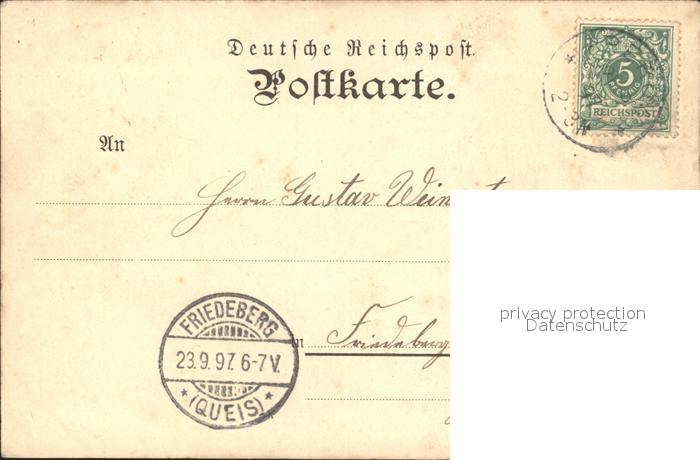 Deutsche Reichspost.
Postkarte.
5
PFENNIG
REICHSPOST
An
Herrn Gustav
privacy protection
Datenschutz
FRIEDEBERG
23.9.97. 6-7V.
* (QUEIS) *
in Friedeberg